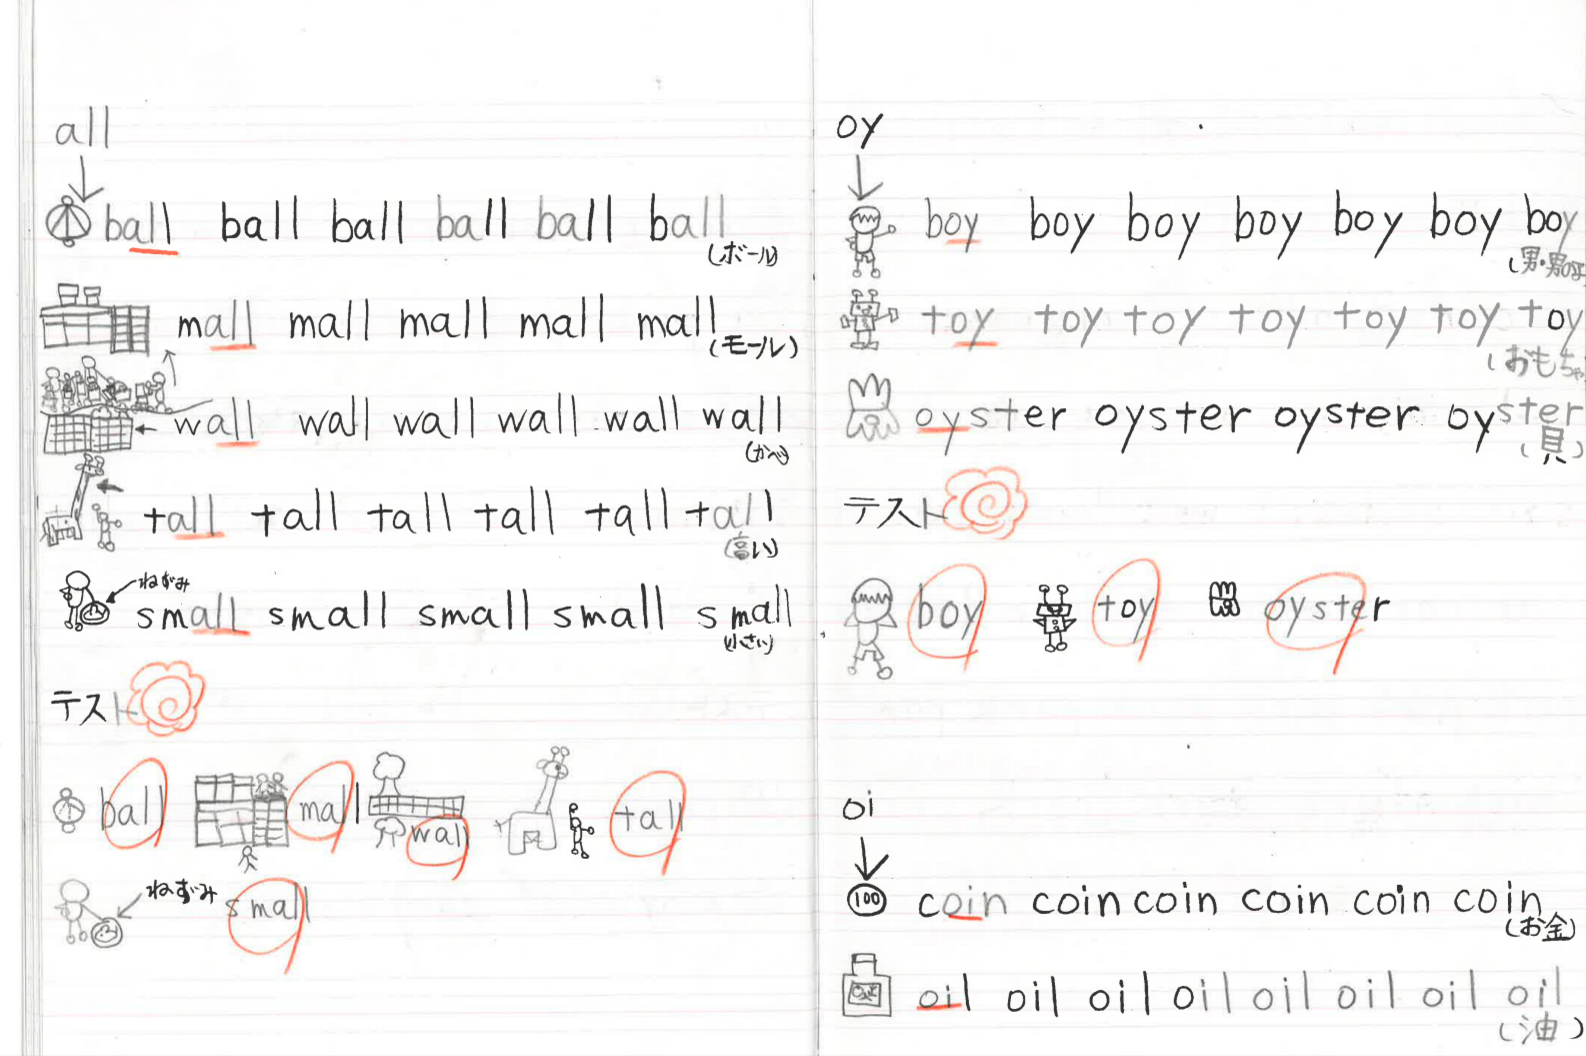 all
ball ball ball ball ball ball
(ボール)
mall mall mall mall mall
(モール)
wall wall wall wall wall wall
(かべ)
tall tall tall tall tall tall
(高い)
ねずみ
small small small small small
(小さい)
テスト
ball mall wall tall
ねずみ small
oy
boy boy boy boy boy boy boy
(男・男の子
toy toy toy toy toy toy toy
(おもちゃ
oyster oyster oyster oyster
(貝)
テスト
boy toy oyster
oi
100 coin coin coin coin coin coin
(お金)
oil oil oil oil oil oil oil oil
(油)